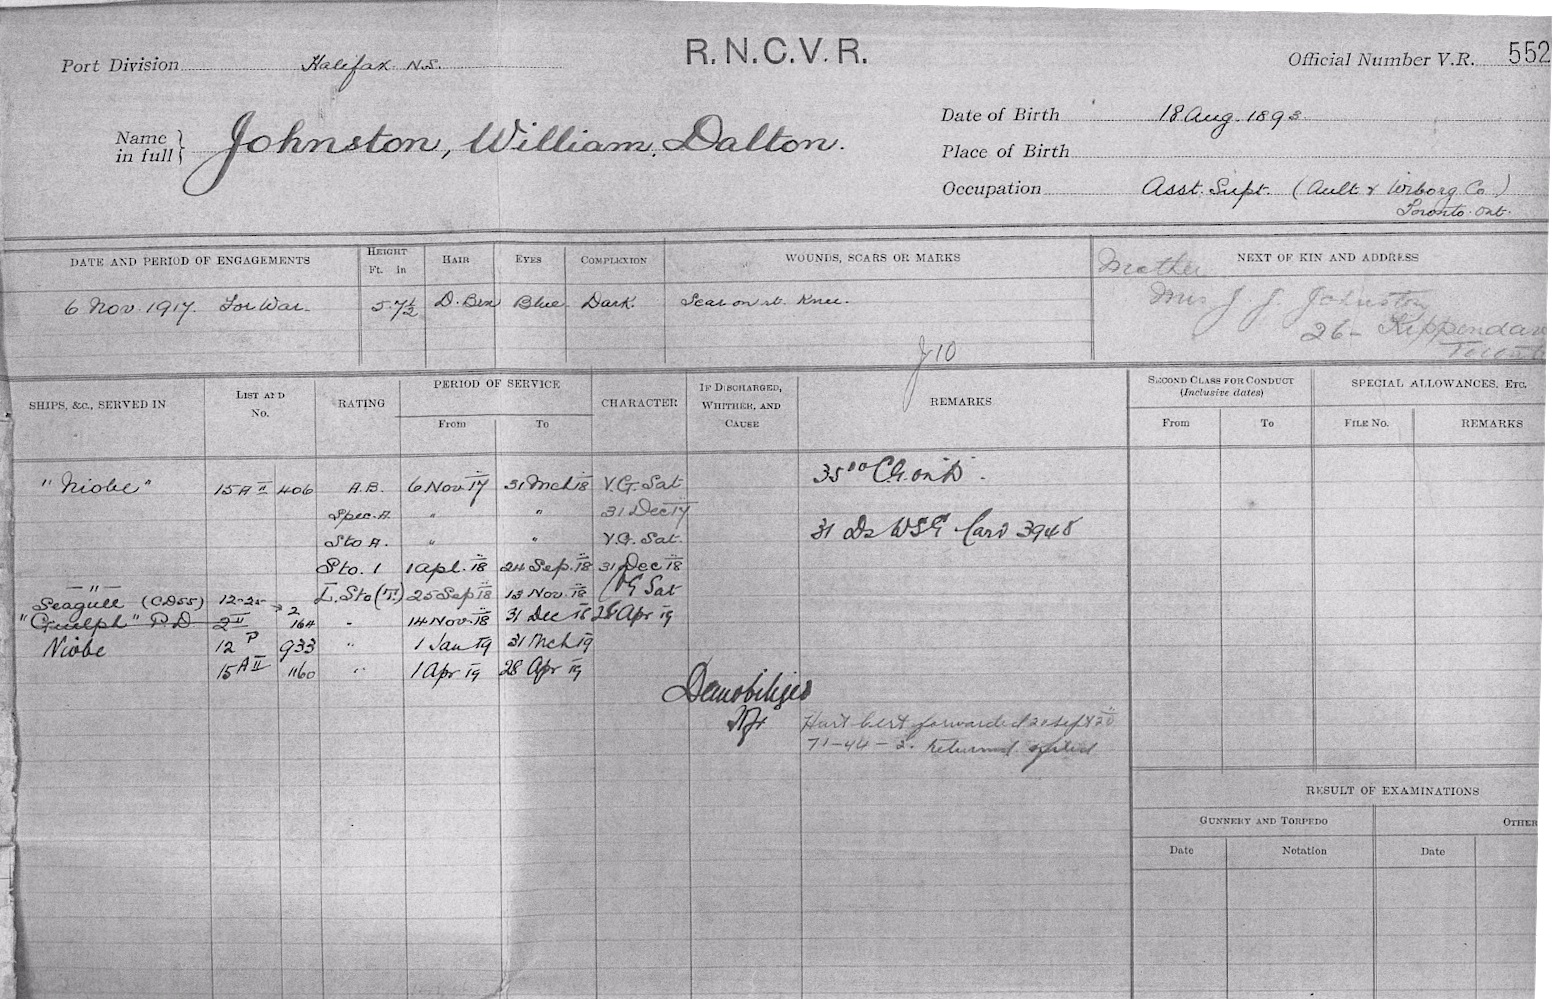 R.N.C.V.R.
Port Division Halifax N.S.
Official Number V.R. 552
Name in full } Johnston, William, Dalton.
Date of Birth 18 Aug. 1893
Place of Birth
Occupation Asst. Supt. (Ault & Wiborg Co)
Toronto. Ont.
DATE AND PERIOD OF ENGAGEMENTS HEIGHT Ft. in HAIR EYES COMPLEXION WOUNDS, SCARS OR MARKS NEXT OF KIN AND ADDRESS
6 Nov. 1917. For War. 5.7½ D. Brn Blue. Dark. Scar on rt. Knee.
Mother
Mrs J J. Johnston
26- Kippendav
Toronto
J10
SHIPS, &c., SERVED IN LIST AND No. RATING PERIOD OF SERVICE From To CHARACTER IF DISCHARGED, WHITHER, AND CAUSE REMARKS SECOND CLASS FOR CONDUCT (Inclusive dates) From To SPECIAL ALLOWANCES, ETC. FILE NO. REMARKS
"Niobe" 15A II 406 A.B. 6 Nov 17 31 Mch 18 V.G. Sat
Spec. A. " " 31 Dec 17
Sto A. " " V.G. Sat. 31 De WSG Card 3948
Sto. 1 1 Apl. 18 24 Sep. 18 31 Dec 18
—"— L. Sto (T.) 25 Sep 18 13 Nov. 18 VG Sat
Seagull (CD55) 12-25
"Guelph" P.D 2 II 2 164 " 14 Nov. 18 31 Dec 18 28 Apr 19
Niobe 12 P 933 " 1 Jan 19 31 Mch 19
15 A II 1160 " 1 Apr 19 28 Apr 19
Demobilized
Hfx
forwarded 20 Sept 20
71-44-2. Returned
RESULT OF EXAMINATIONS
GUNNERY AND TORPEDO OTHER
Date Notation Date